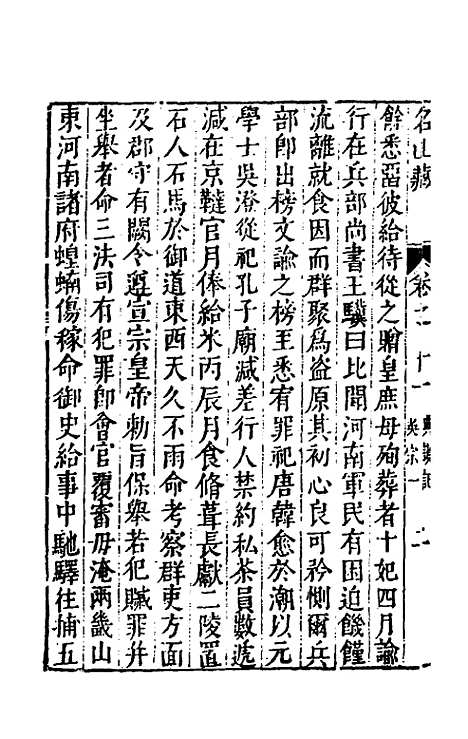 名山藏 卷之 典謨記 英宗一
餘悉罷彼給待從之贈皇庶母殉葬者十妃四月諭
行在兵部尚書王驥曰比聞河南軍民有困迫饑饉
流離就食因而群聚為盜原其初心良可矜惻爾兵
部卽出榜文諭之榜至悉宥罪祀唐韓愈於潮以元
學士吳澄從祀孔子廟減差行人禁約私茶員數遞
減在京韃官月俸給米丙辰月食脩葺長獻二陵置
石人石馬於御道東西天久不雨命考察群吏方面
及郡守有闕令遵宣宗皇帝勑旨保舉若犯贓罪并
坐舉者命三法司有犯罪卽會官覆審毋淹兩畿山
東河南諸府蝗蝻傷稼命御史給事中馳驛往捕五